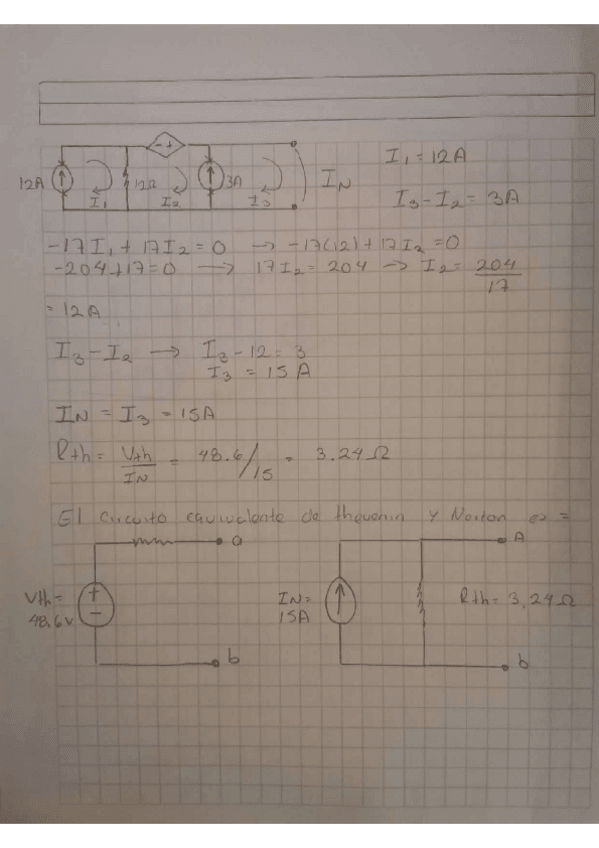 I₁ = 12A
12A 12Ω - + 3A I_N
I₁ I₂ I₃
I₃ - I₂ = 3A
-17I₁ + 17I₂ = 0 → -17(12) + 17I₂ = 0
-204 + 17 = 0 → 17I₂ = 204 → I₂ = 204/17
= 12A
I₃ - I₂ → I₃ - 12 = 3
I₃ = 15A
I_N = I₃ = 15A
Rth = Vth/I_N = 48.6/15 = 3.24Ω
El circuito equivalente de thevenin y Norton es =
a A
Vth = 48.6v + - I_N = 15A Rth = 3.24Ω
b b